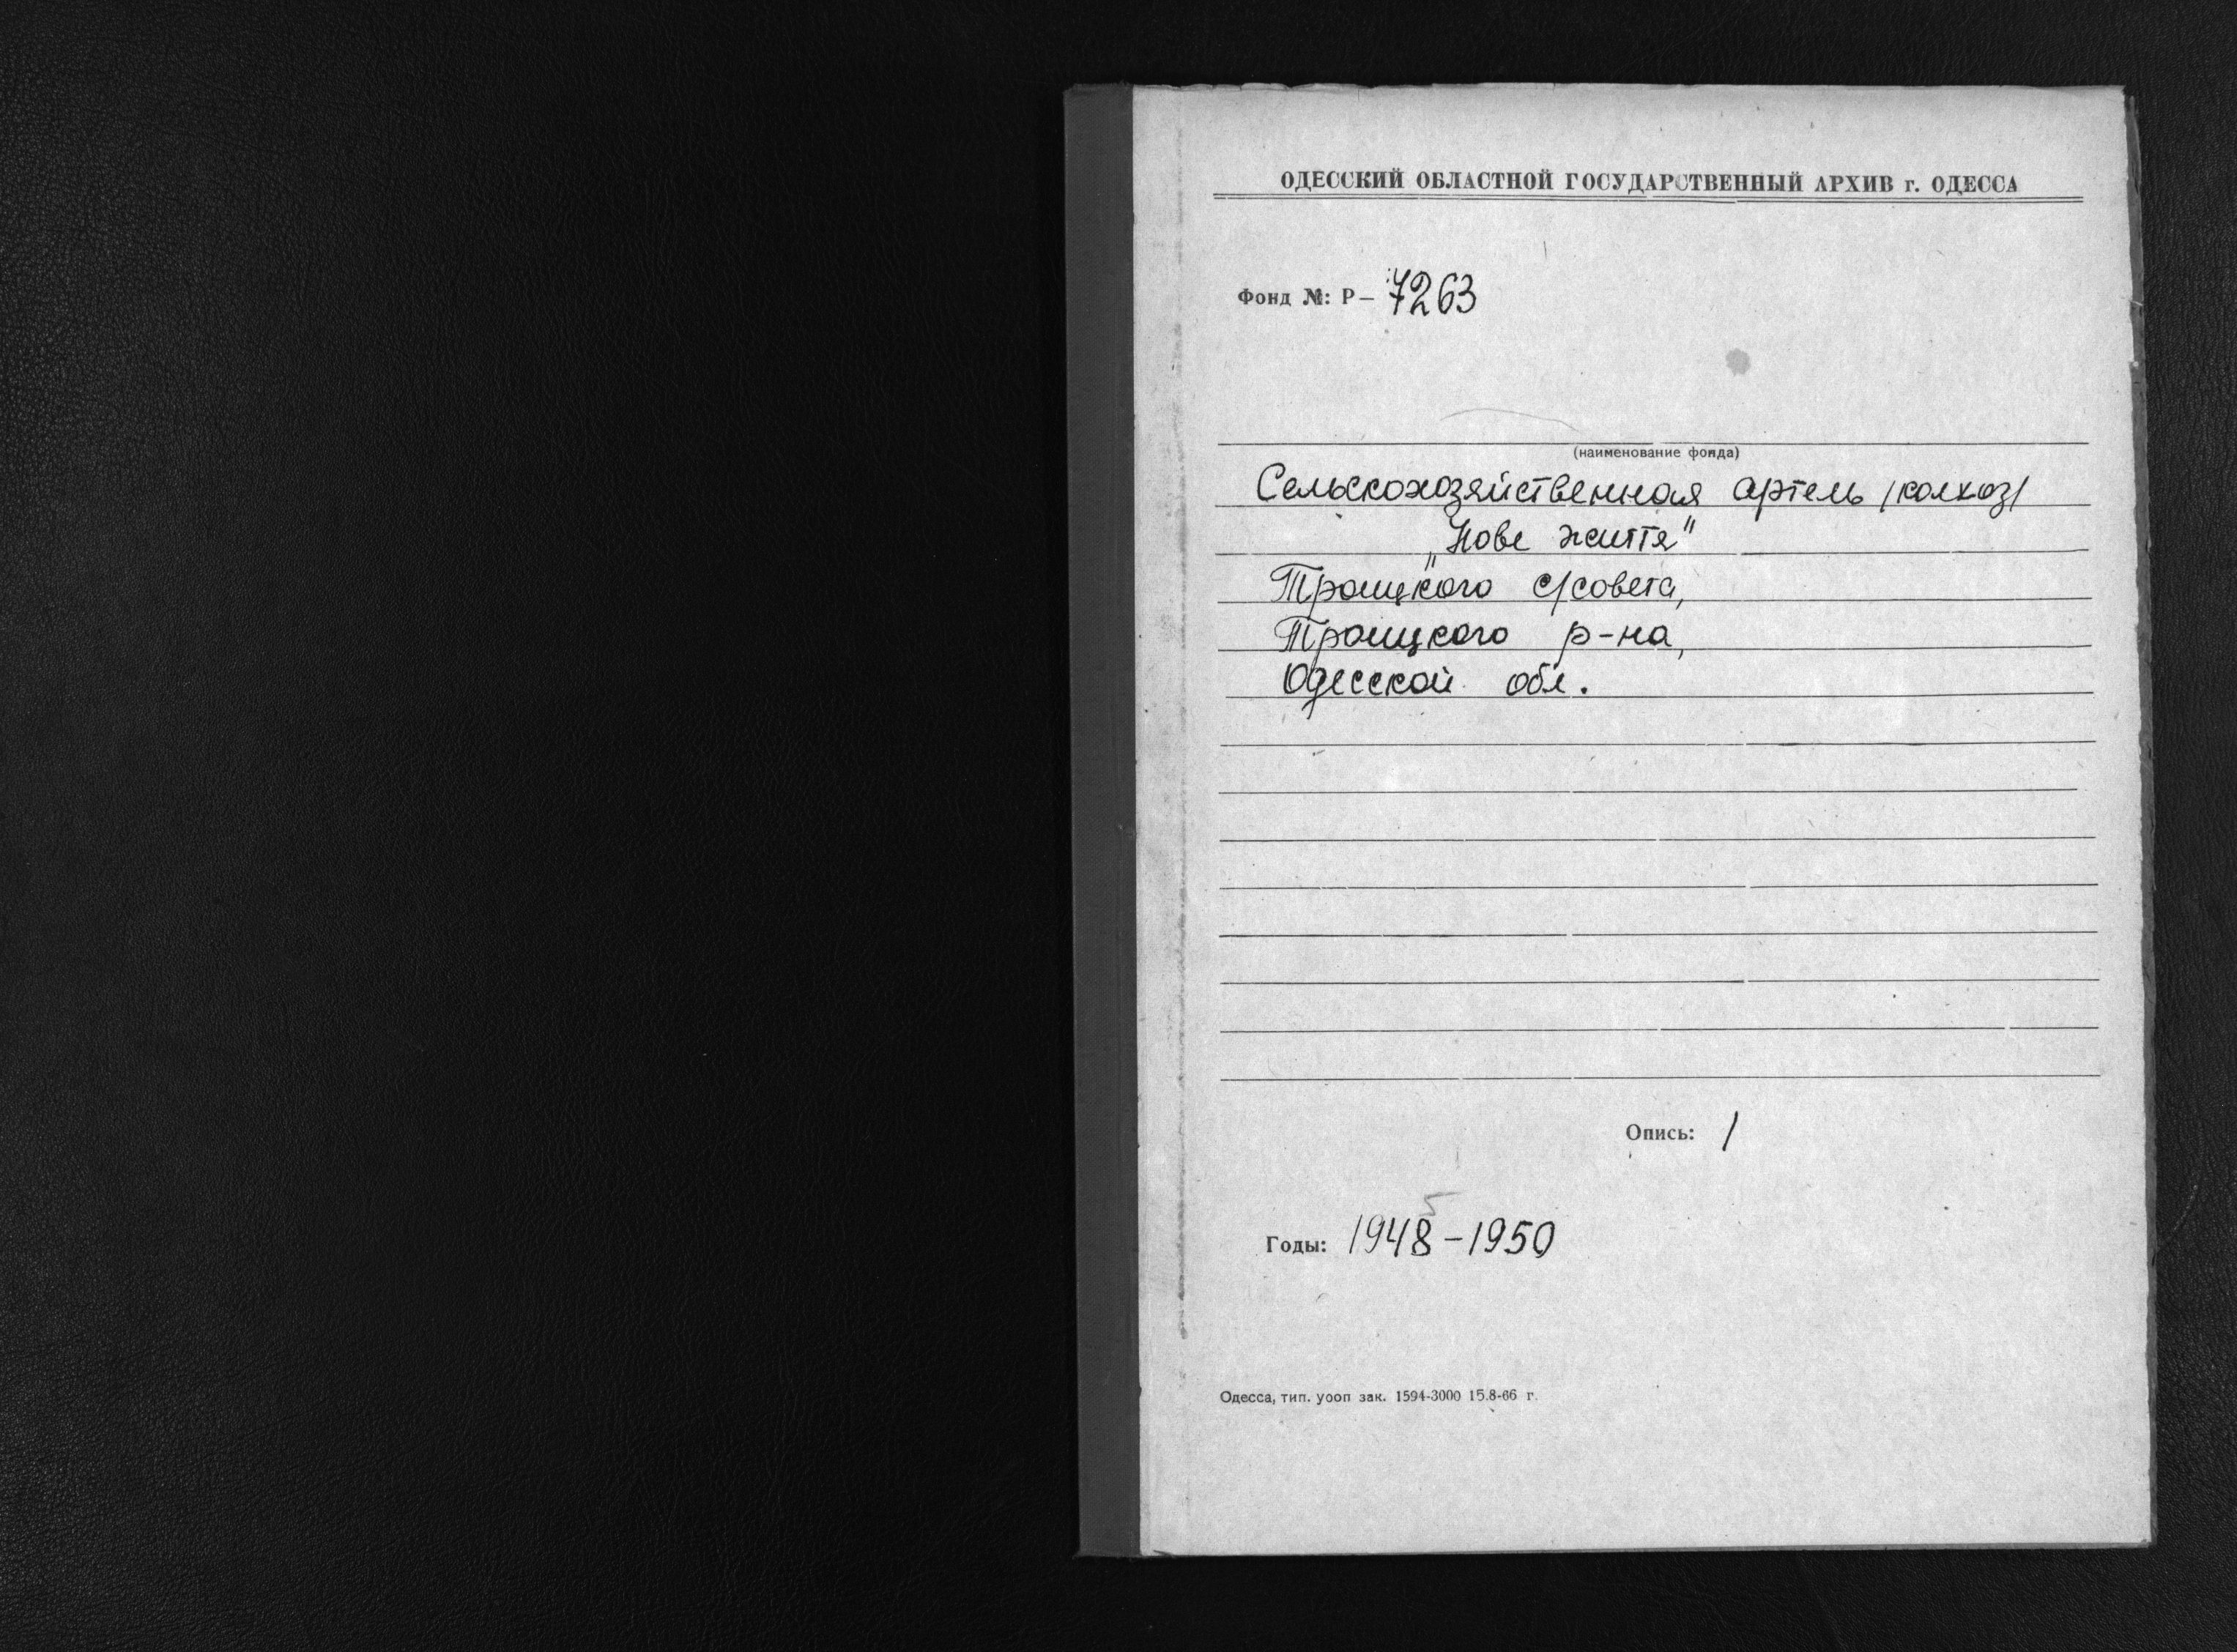 ОДЕССКИЙ ОБЛАСТНОЙ ГОСУДАРСТВЕННЫЙ АРХИВ г. ОДЕССА
Фонд №: Р– 7263
(наименование фонда)
Сельскохозяйственная артель /колхоз/
„Нове життя"
Троицкого с/совета,
Троицкого р-на,
Одесской обл.
Опись: 1
5
Годы: 1948-1950
Одесса, тип. уооп зак. 1594-3000 15.8-66 г.